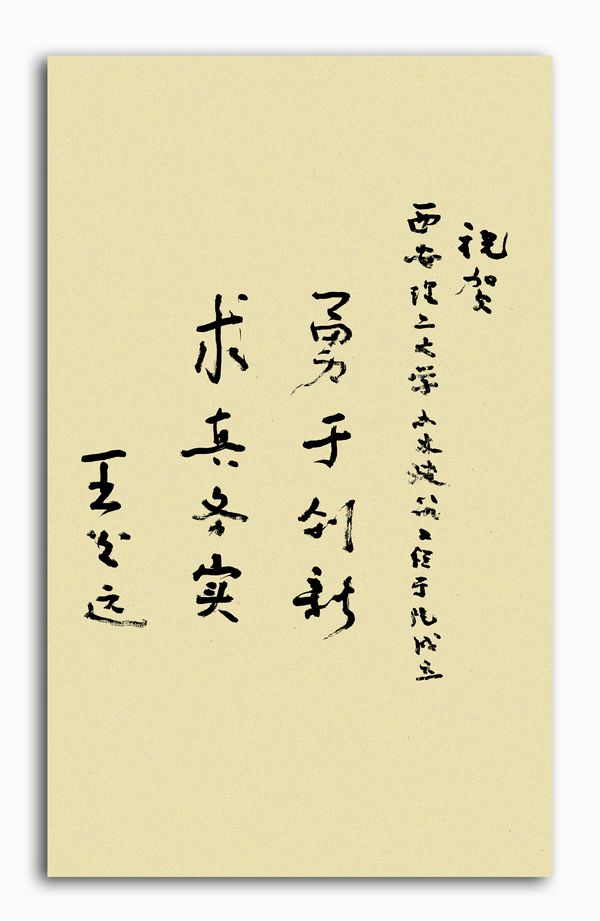 祝贺
西安理工大学土木建筑工程学院成立
勇于创新
求真务实
王光远